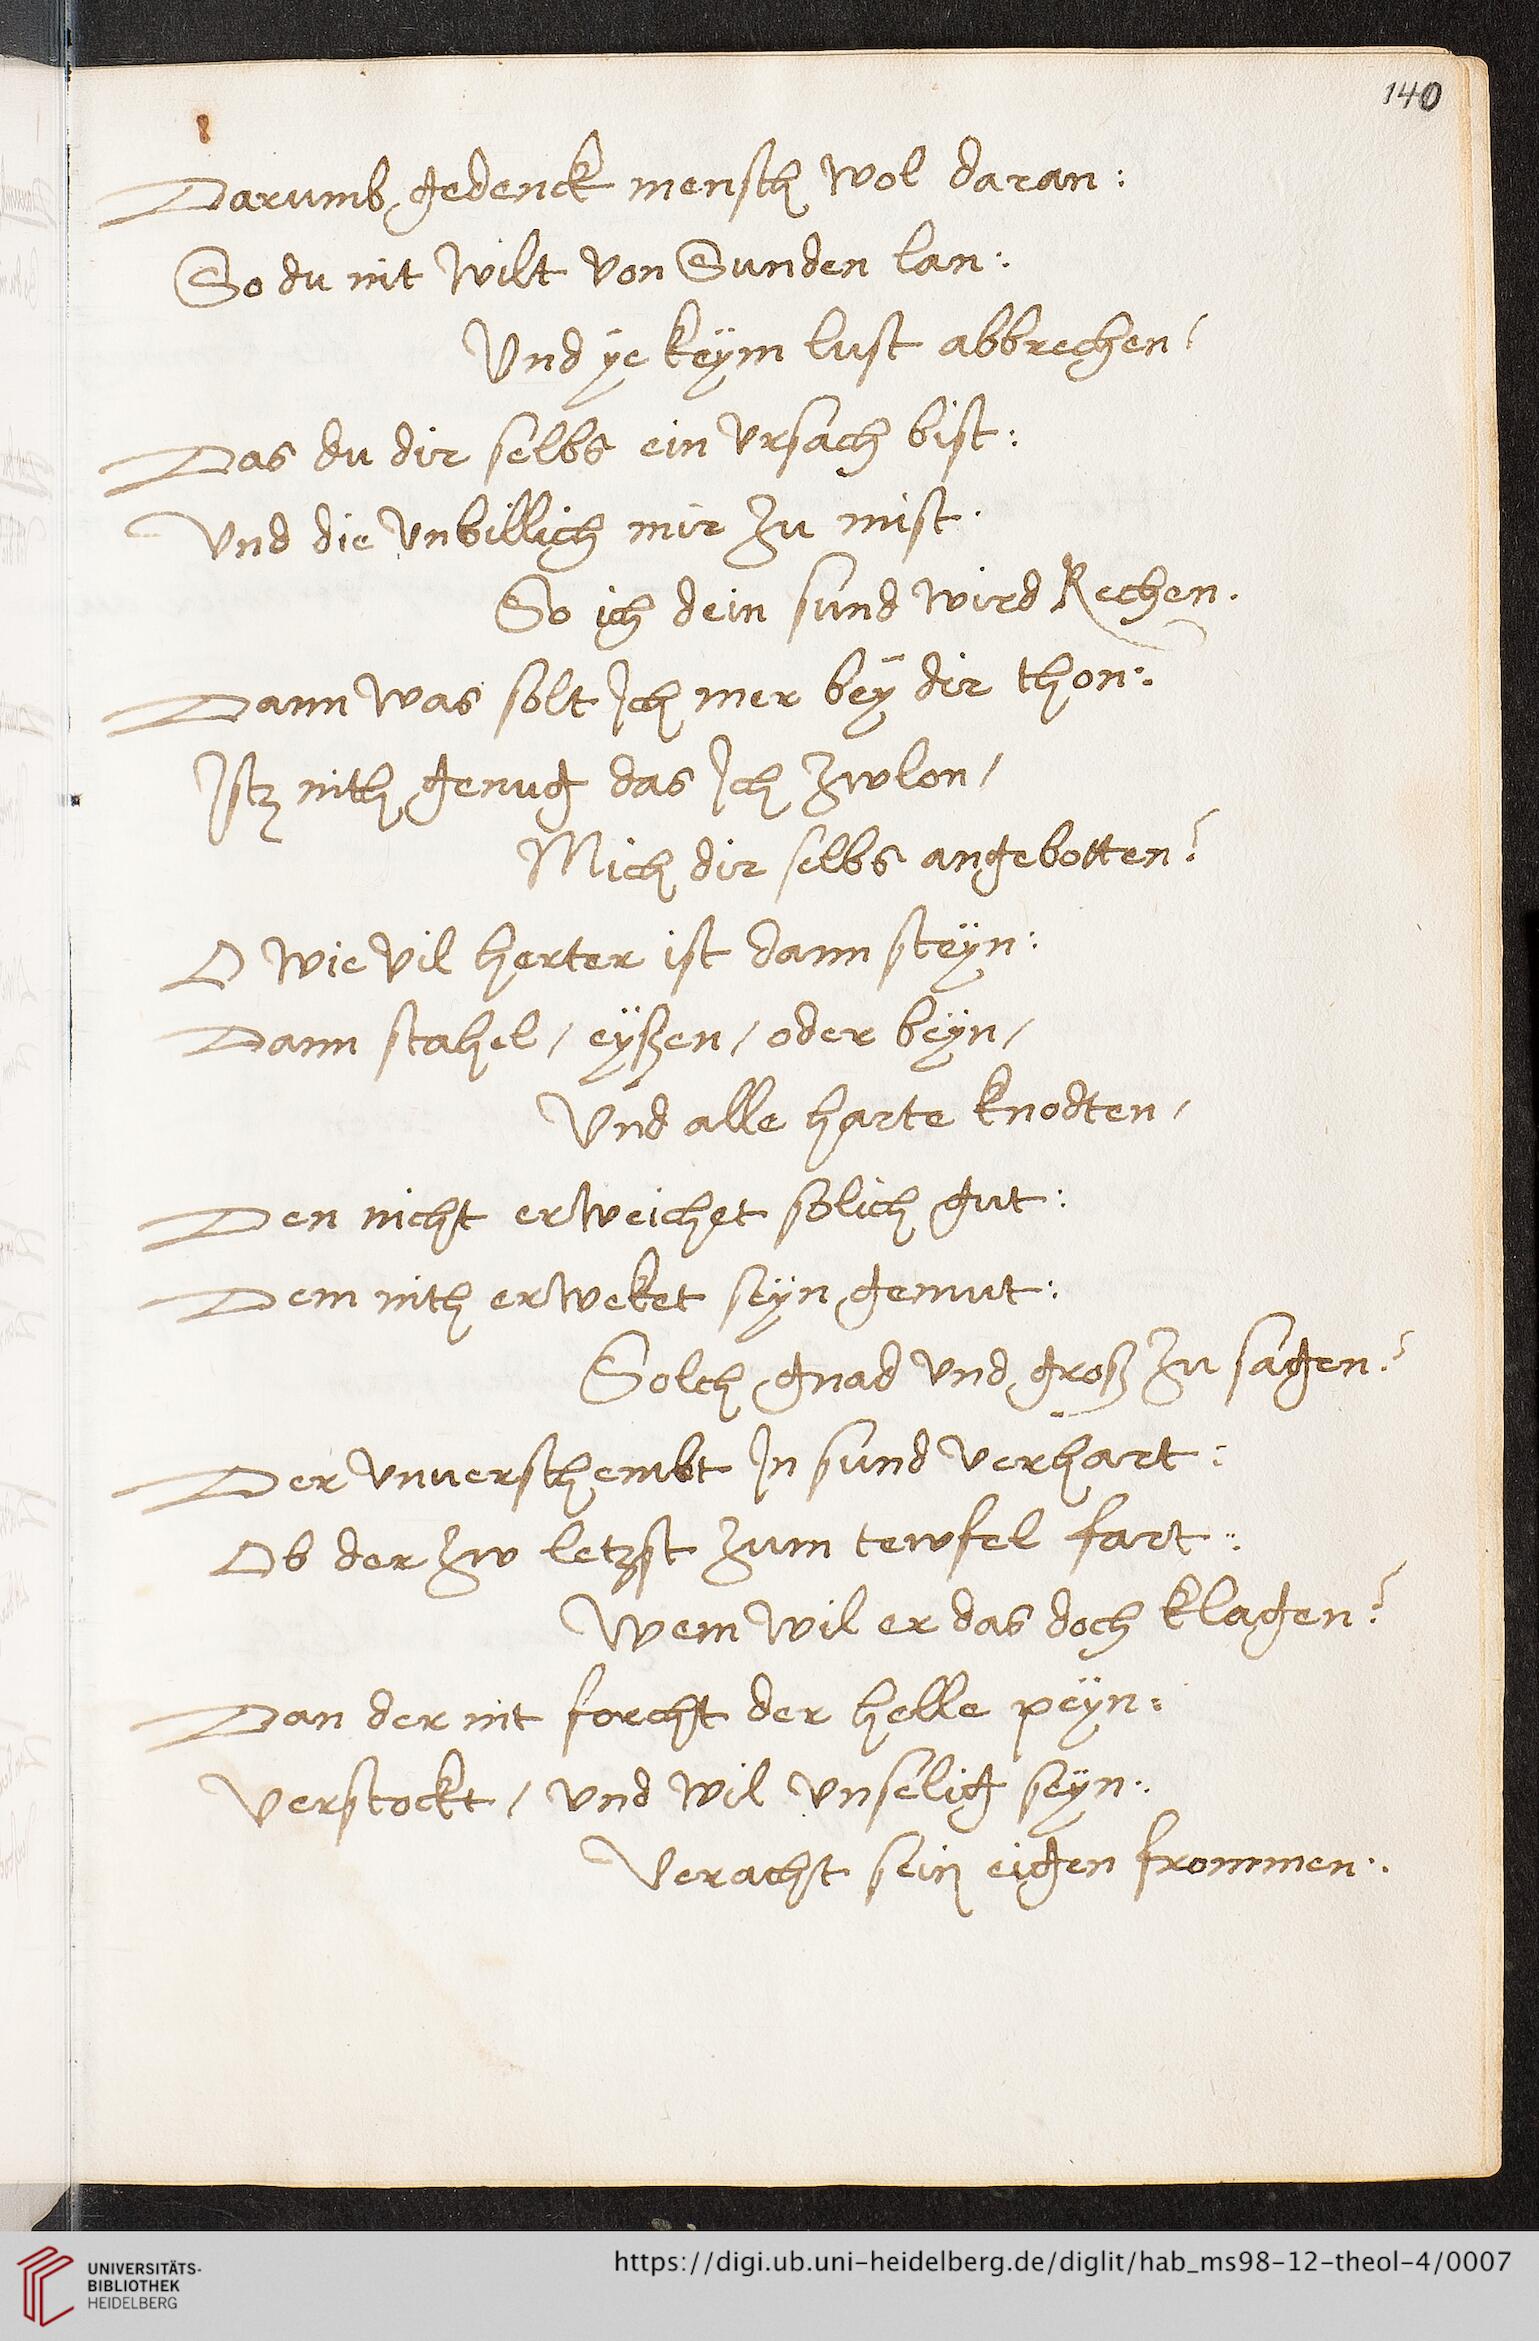 140
Darumb gedenck mensch wol daran:
So du nit wilt von Sunden lan:.
Und ÿe keÿm lust abbrechen?
Das du dir selbs ein vrsach bist:
Vnd die vnbillich mir zu mist.
So ich dein sund wird Rechen.
Dann was solt Ich mer beÿ dir thon:.
Istz nith genug das Ich zwlon/
Mich dir selbs angebotten?
O wie vil herter ist dann steÿn:
Dann stahel/ eÿßen/ oder beÿn/
Vnd alle harte knodten/
Den nicht erweichet solich gut:
Dem nith erweket seÿn gemut:
Solch gnad vnd groß zu sagen?
Der vnuerschembt In sund verhart:
Ob der zw letzst zum tewfel fart:.
Wem wil er das doch klagen?
Dan der nit forcht der helle peÿn:
Verstockt/ vnd wil vnselig seÿn:.
Veracht sein eigen frommen:.
UNIVERSITÄTS-
BIBLIOTHEK
HEIDELBERG
https://digi.ub.uni-heidelberg.de/diglit/hab_ms98-12-theol-4/0007